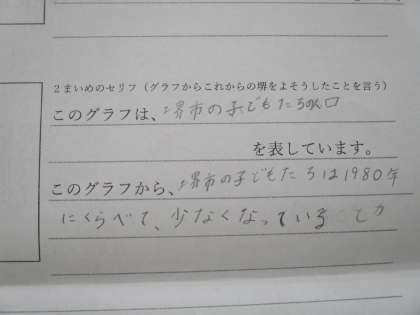 2まいめのセリフ（グラフからこれからの堺をよそうしたことを言う）
このグラフは、堺市の子どもたちの人口
を表しています。
このグラフから、堺市の子どもたちは1980年
にくらべて、少なくなっていることが